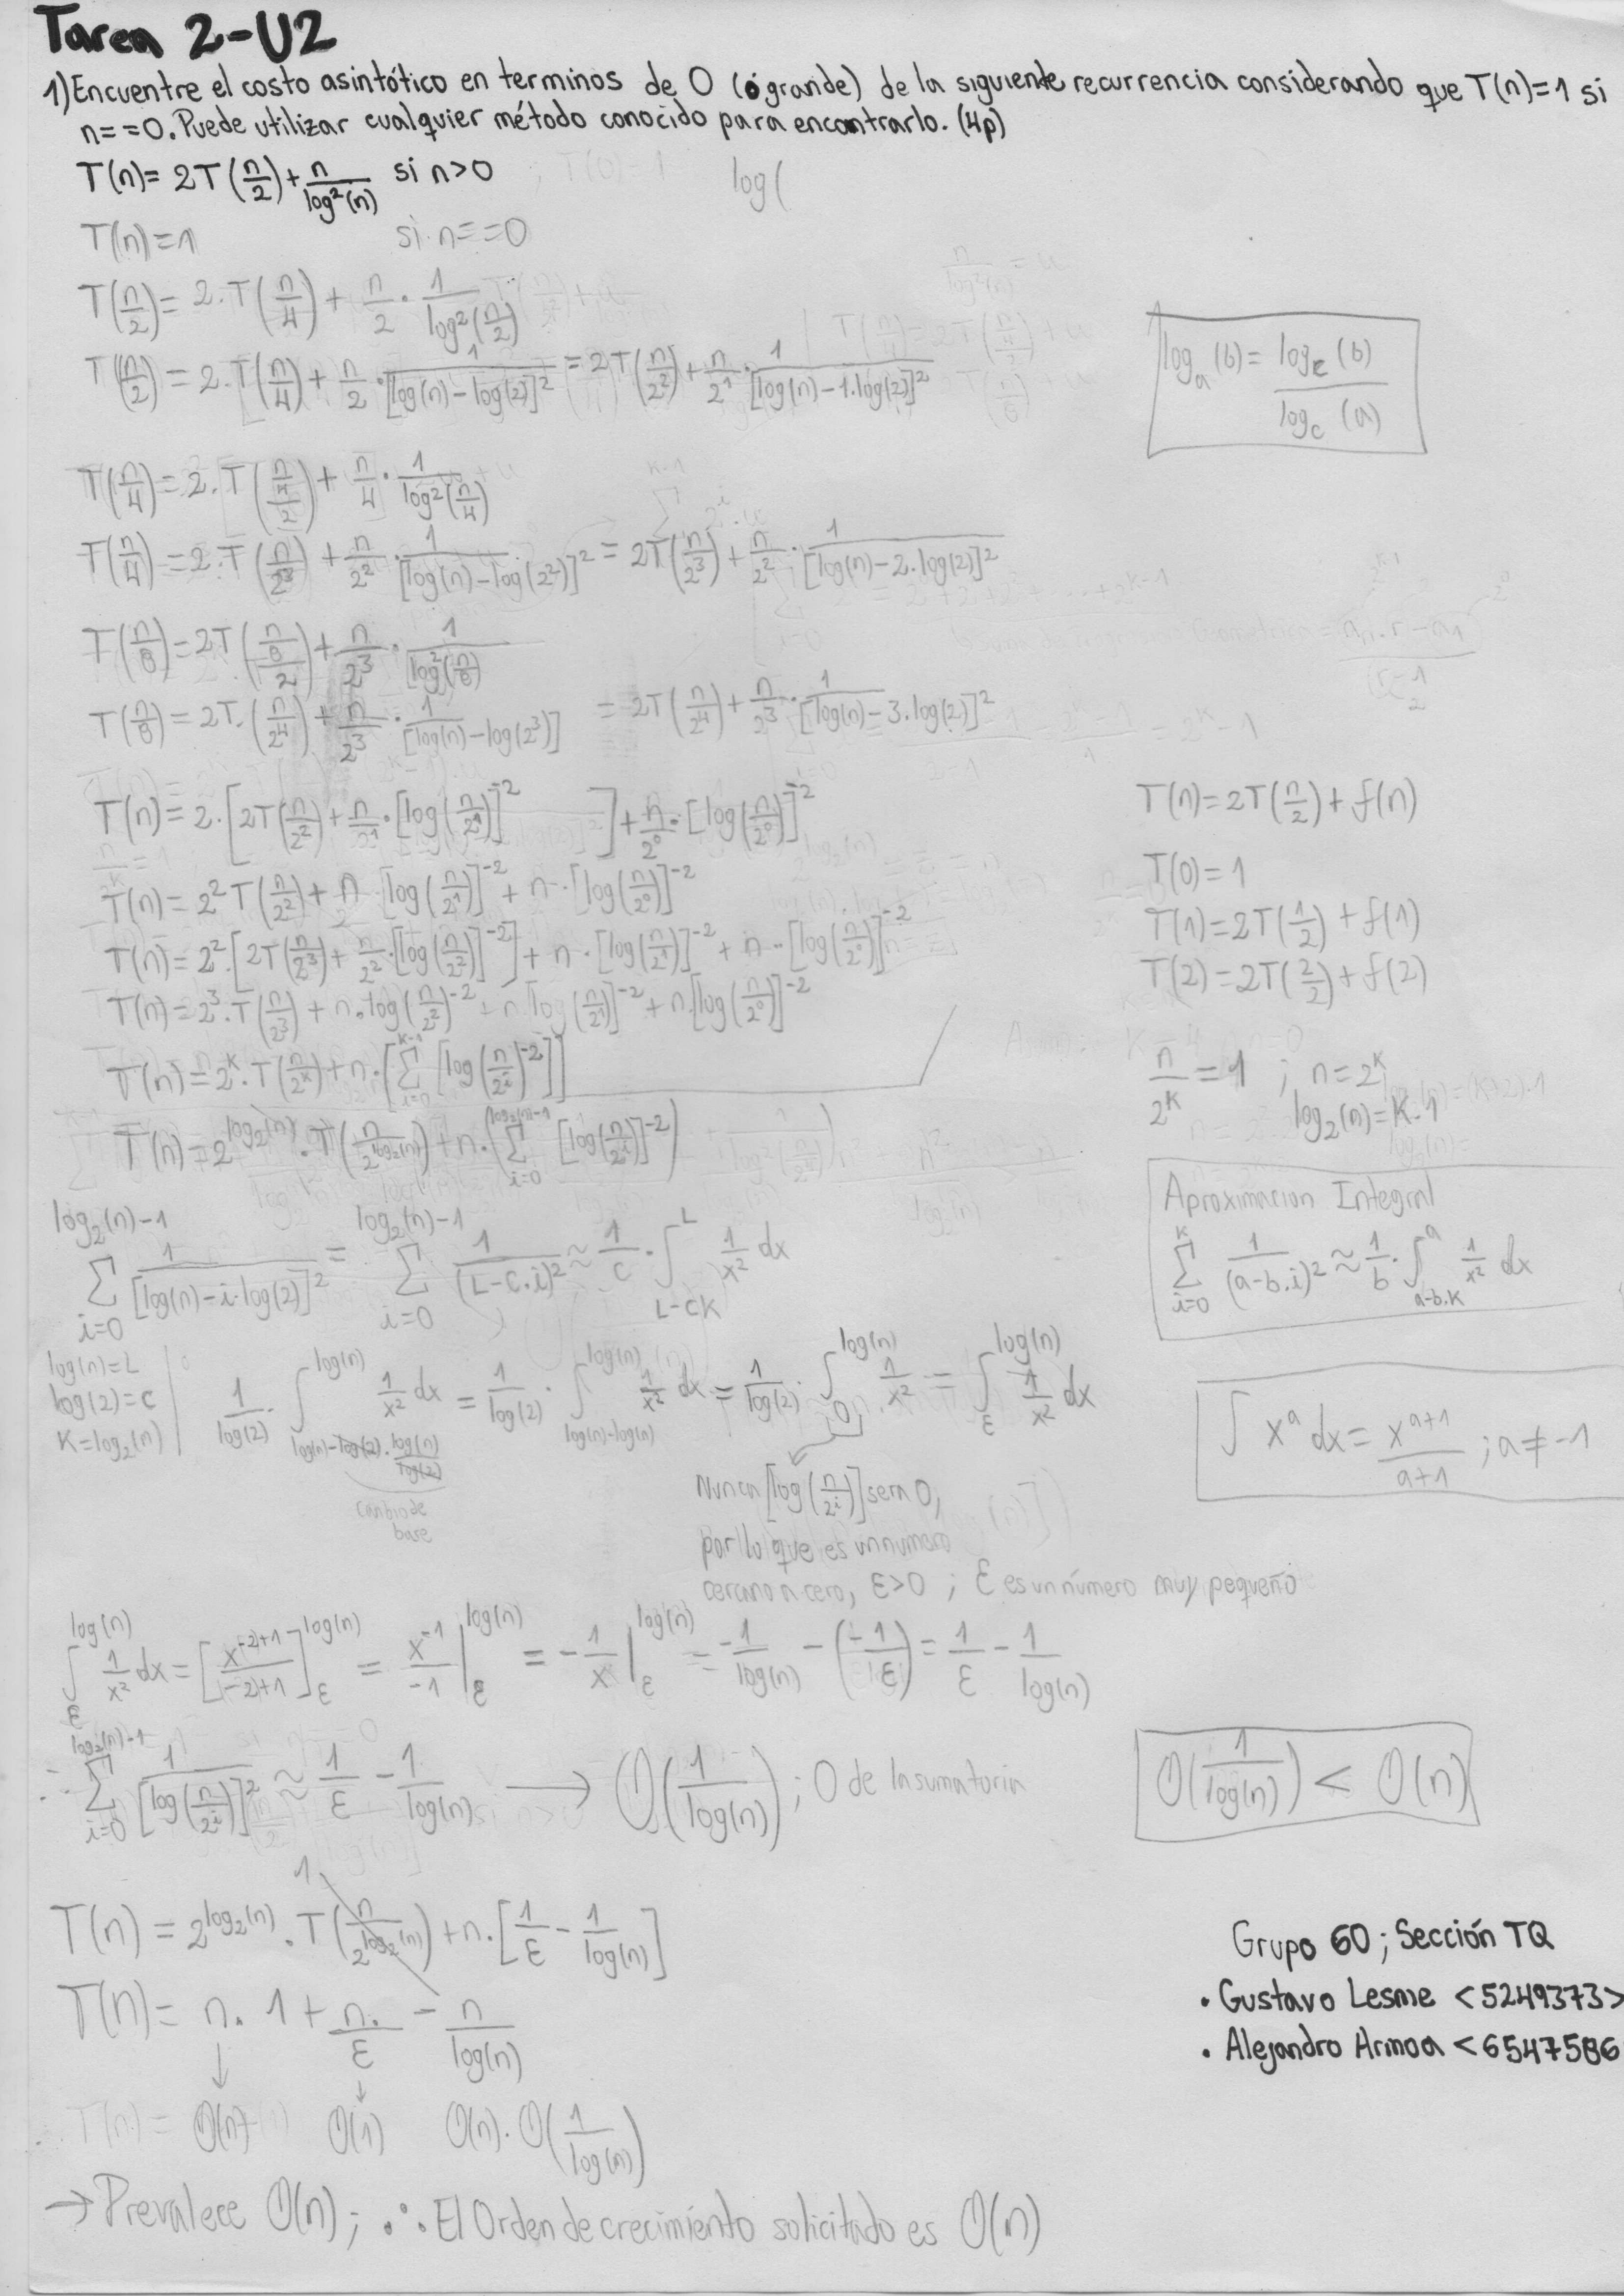 Tarea 2-U2
1) Encuentre el costo asintótico en terminos de O (ó grande) de la siguiente recurrencia considerando que T(n)=1 si
n==0. Puede utilizar cualquier método conocido para encontrarlo. (4p)
T(n)= 2T(n/2)+n/log²(n) si n>0 ; T(0)=1 log(
T(n)=1 si n==0
T(n/2)= 2·T(n/4) + n/2 · 1/log²(n/2)
T(n/2) = 2·T(n/4) + n/2 · 1/[log(n)-log(2)]² = 2T(n/2²) + n/2¹ · 1/[log(n)-1·log(2)]²
log_a (b) = log_c (b) / log_c (a)
T(n/4) = 2·T((n/4)/2) + n/4 · 1/log²(n/4)
T(n/4) = 2·T(n/2³) + n/2² · 1/[log(n)-log(2²)]² = 2T(n/2³) + n/2² · 1/[log(n)-2·log(2)]²
T(n/8) = 2T((n/8)/2) + n/2³ · 1/log²(n/8)
T(n/8) = 2T·(n/2⁴) + n/2³ · 1/[log(n)-log(2³)] = 2T(n/2⁴) + n/2³ · 1/[log(n)-3·log(2)]²
T(n) = 2·[2T(n/2²) + n/2¹·[log(n/2¹)]⁻²] + n/2⁰·[log(n/2⁰)]⁻²
T(n) = 2² T(n/2²) + n [log(n/2¹)]⁻² + n·[log(n/2⁰)]⁻²
T(n) = 2²·[2T(n/2³) + n/2²·[log(n/2²)]⁻²] + n·[log(n/2¹)]⁻² + n·[log(n/2⁰)]⁻²
T(n) = 2³·T(n/2³) + n·log(n/2²)⁻² + n[log(n/2¹)]⁻² + n·[log(n/2⁰)]⁻²
T(n) = 2^k·T(n/2^k) + n·[∑_{i=0}^{k-1} [log(n/2^i)⁻²]]
T(n) = 2^{log₂(n)}·T(n/2^{log₂(n)}) + n·(∑_{i=0}^{log₂(n)-1} [log(n/2^i)]⁻²)
T(n) = 2T(n/2) + f(n)
T(0) = 1
T(1) = 2T(1/2) + f(1)
T(2) = 2T(2/2) + f(2)
n/2^k = 1 ; n = 2^k
log₂(n) = K·1
∑_{i=0}^{log₂(n)-1} 1/[log(n)-i·log(2)]² = ∑_{i=0}^{log₂(n)-1} 1/(L-C·i)² ≈ 1/C · ∫_{L-CK}^{L} 1/x² dx
Aproximacion Integral
∑_{i=0}^{K} 1/(a-b·i)² ≈ 1/b · ∫_{a-b·K}^{a} 1/x² dx
log(n)=L
log(2)=C
K=log₂(n)
1/log(2) · ∫_{log(n)-log(2)·log(n)/log(2)}^{log(n)} 1/x² dx = 1/log(2) · ∫_{log(n)-log(n)}^{log(n)} 1/x² dx = 1/log(2) · ∫_{0}^{log(n)} 1/x² = ∫_{ε}^{log(n)} 1/x² dx
cambio de
base
∫ x^a dx = x^{a+1}/(a+1) ; a≠-1
Nunca [log(n/2^i)] sera 0,
por lo que es un numero
cercano a cero, ε>0 ; ε es un número muy pequeño
∫_{ε}^{log(n)} 1/x² dx = [x^{-2+1}/(-2+1)]_{ε}^{log(n)} = x⁻¹/-1 |_{ε}^{log(n)} = -1/x |_{ε}^{log(n)} = -1/log(n) - (-1/ε) = 1/ε - 1/log(n)
∴ ∑_{i=0}^{log₂(n)-1} 1/[log(n/2^i)]² ≈ 1/ε - 1/log(n) → O(1/log(n)) ; O de la sumatoria
O(1/log(n)) < O(n)
T(n) = 2^{log₂(n)}·T(n/2^{log₂(n)}) 1 + n·[1/ε - 1/log(n)]
T(n) = n·1 + n·/ε - n/log(n)
T(n) = O(n) O(n) O(n)·O(1/log(n))
→ Prevalece O(n) ; ∴ El Orden de crecimiento solicitado es O(n)
Grupo 60 ; Sección TQ
• Gustavo Lesme <5249373>
• Alejandro Armoa <6547586